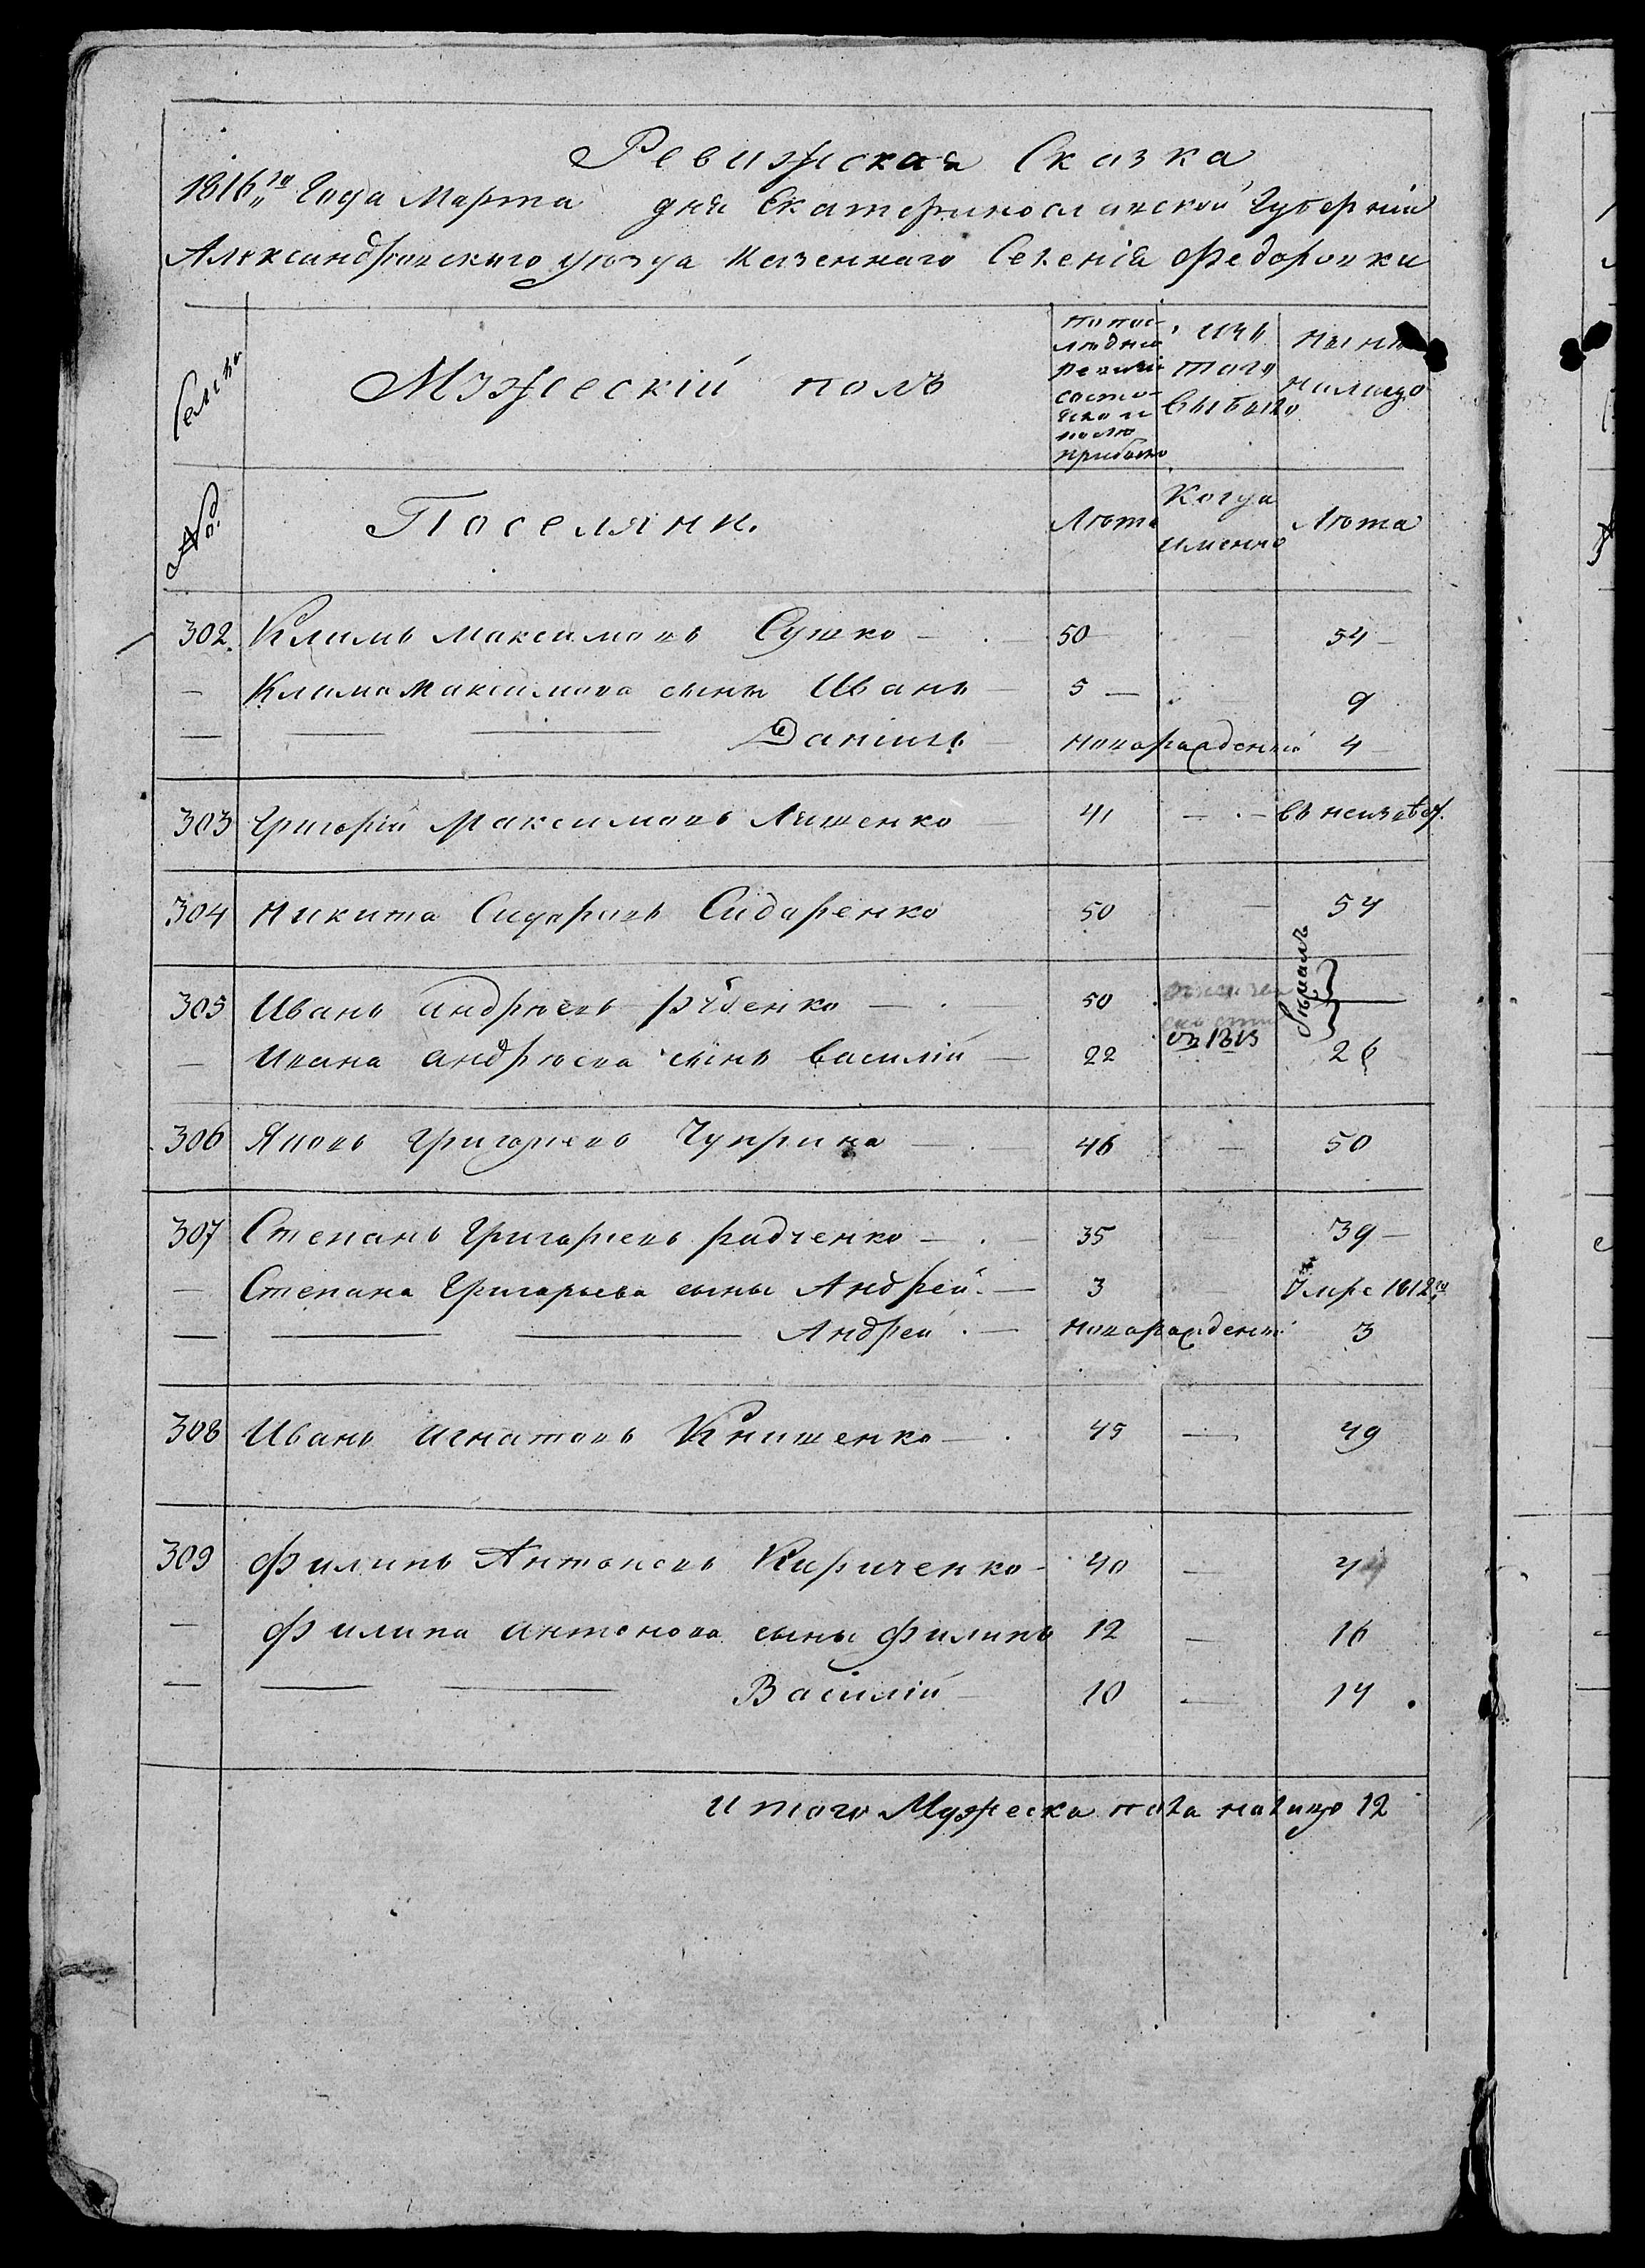 Ревизская Сказка
1816го Года Марта дня Екатеринославской Губернии
Александровского уезда Казенного Селения Федоровки
Семьи
Мужеский полъ
по последней ревизии состояло и после прибыло
изъ того выбыло
ныне налицо
№
Поселяни.
Лета
Когда именно
Лета
302. Климъ Максимовъ Сушко — 50 54 —
— Клима Максимова сыны Иванъ — 5 — 9
— — — Данилъ — новорожденый 4 —
303 Григорий Максимовъ Лященко — 41 — —
304 Никита Сидоровъ Сидоренко 50 — 54
305 Иванъ Андреевъ — 50 1813
— Ивана Андреева сынъ Василий — 22 26
306 Яковъ Григорьевъ Чуприна — 46 — 50
307 Степанъ Григорьевъ Радченко — 35 — 39 —
— Степана Григорьева сыны Андрей — 3 — Умре 1812го
— — — Андрей — новорожденый 3
308 Иванъ Игнатовъ Книшенко — 45 — 49
309 Филипъ Антоновъ Кириченко — 40 — 44
— Филипа Антонова сыны Филипъ 12 — 16
— — — Василий — 10 — 14
Итого Мужеска пола налицо 12